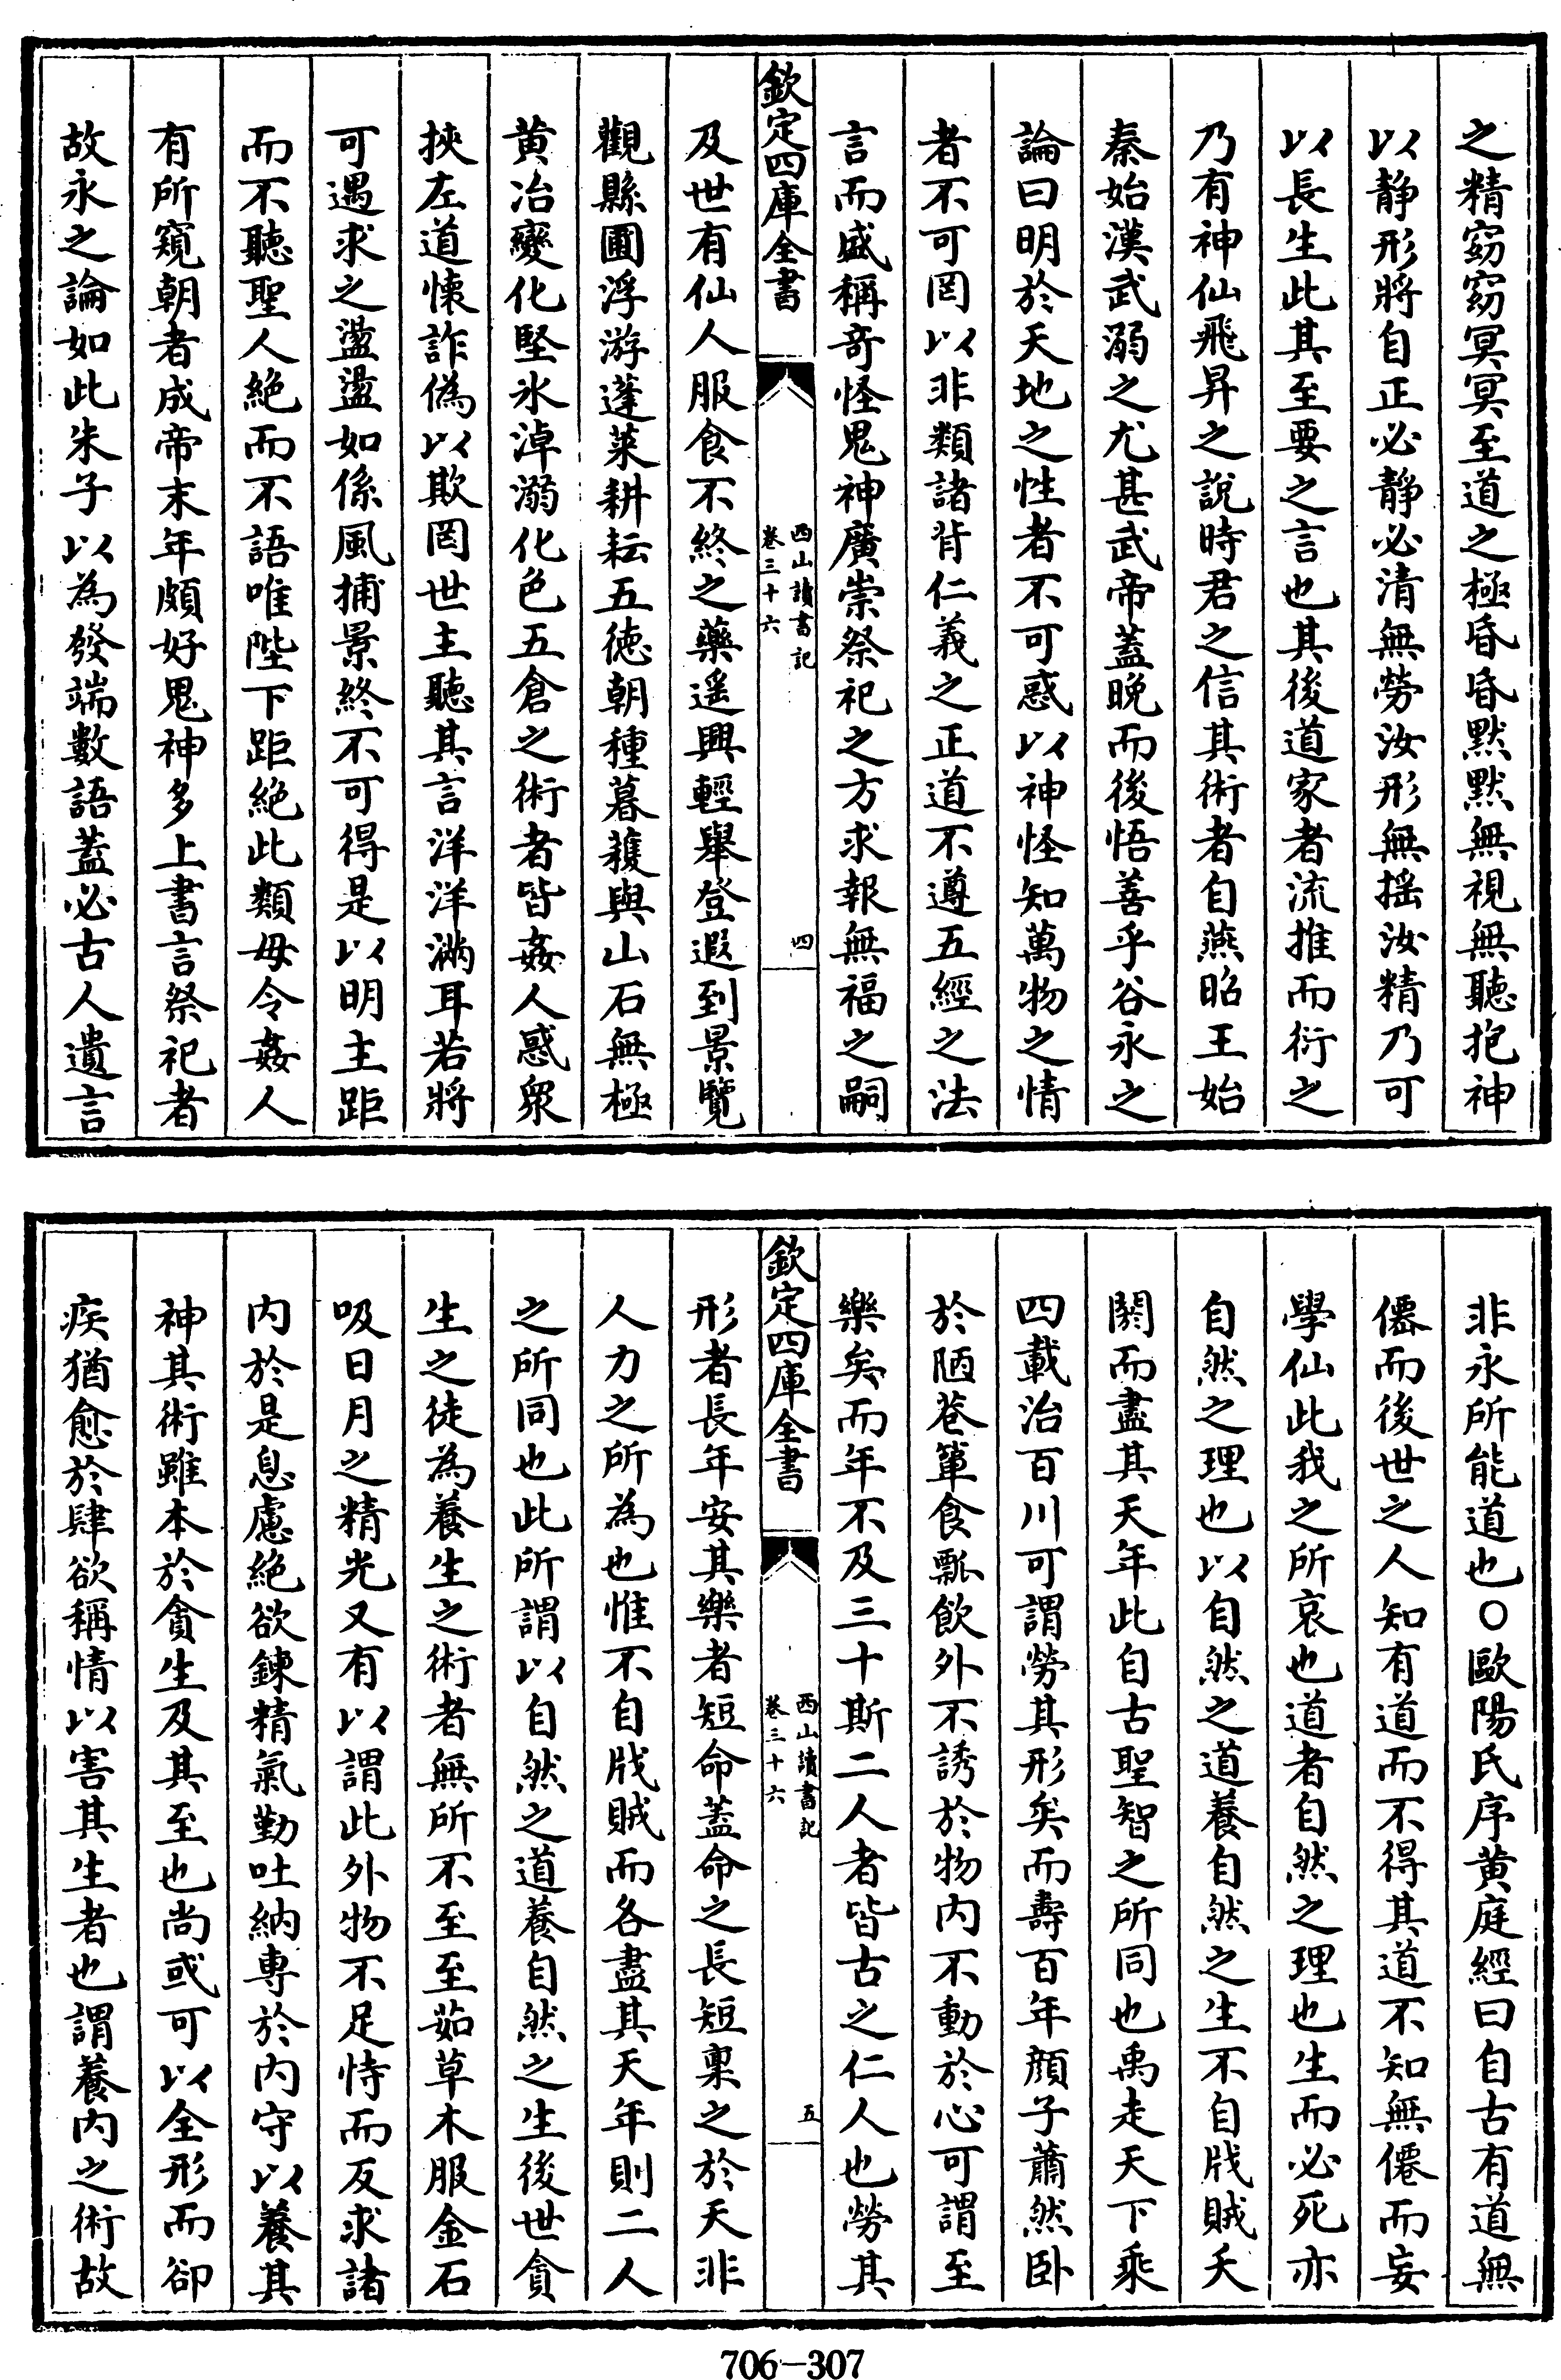 之精窈窈冥冥至道之極昏昏默默無視無聽抱神
以静形將自正必静必清無勞汝形無揺汝精乃可
以長生此其至要之言也其後道家者流推而衍之
乃有神仙飛昇之說時君之信其術者自燕昭王始
秦始漢武溺之尤甚武帝蓋晚而後悟善乎谷永之
論曰明於天地之性者不可惑以神怪知萬物之情
者不可罔以非類諸背仁義之正道不遵五經之法
言而盛稱奇怪鬼神廣崇祭祀之方求報無福之嗣
欽定四庫全書
西山讀書記
卷三十六
四
及世有仙人服食不終之藥遥興輕舉登遐到景覽
觀縣圃浮游蓬萊耕耘五徳朝種暮穫與山石無極
黄冶變化堅氷淖溺化色五倉之術者皆姦人惑衆
挾左道懐詐偽以欺罔世主聽其言洋洋滿耳若將
可遇求之盪盪如係風捕景終不可得是以明主距
而不聽聖人絶而不語唯陛下距絶此類毋令姦人
有所窺朝者成帝末年頗好鬼神多上書言祭祀者
故永之論如此朱子以為發端數語蓋必古人遺言
非永所能道也○歐陽氏序黄庭經曰自古有道無
僊而後世之人知有道而不得其道不知無僊而妄
學仙此我之所哀也道者自然之理也生而必死亦
自然之理也以自然之道養自然之生不自戕賊夭
閼而盡其天年此自古聖智之所同也禹走天下乘
四載治百川可謂勞其形矣而壽百年顔子蕭然卧
於陋巷簞食瓢飲外不誘於物内不動於心可謂至
樂矣而年不及三十斯二人者皆古之仁人也勞其
欽定四庫全書
西山讀書記
卷三十六
五
形者長年安其樂者短命蓋命之長短禀之於天非
人力之所為也惟不自戕賊而各盡其天年則二人
之所同也此所謂以自然之道養自然之生後世貪
生之徒為養生之術者無所不至至茹草木服金石
吸日月之精光又有以謂此外物不足恃而反求諸
内於是息慮絶欲鍊精氣勤吐納專於内守以養其
神其術雖本於貪生及其至也尚或可以全形而卻
疾猶愈於肆欲稱情以害其生者也謂養内之術故
706-307